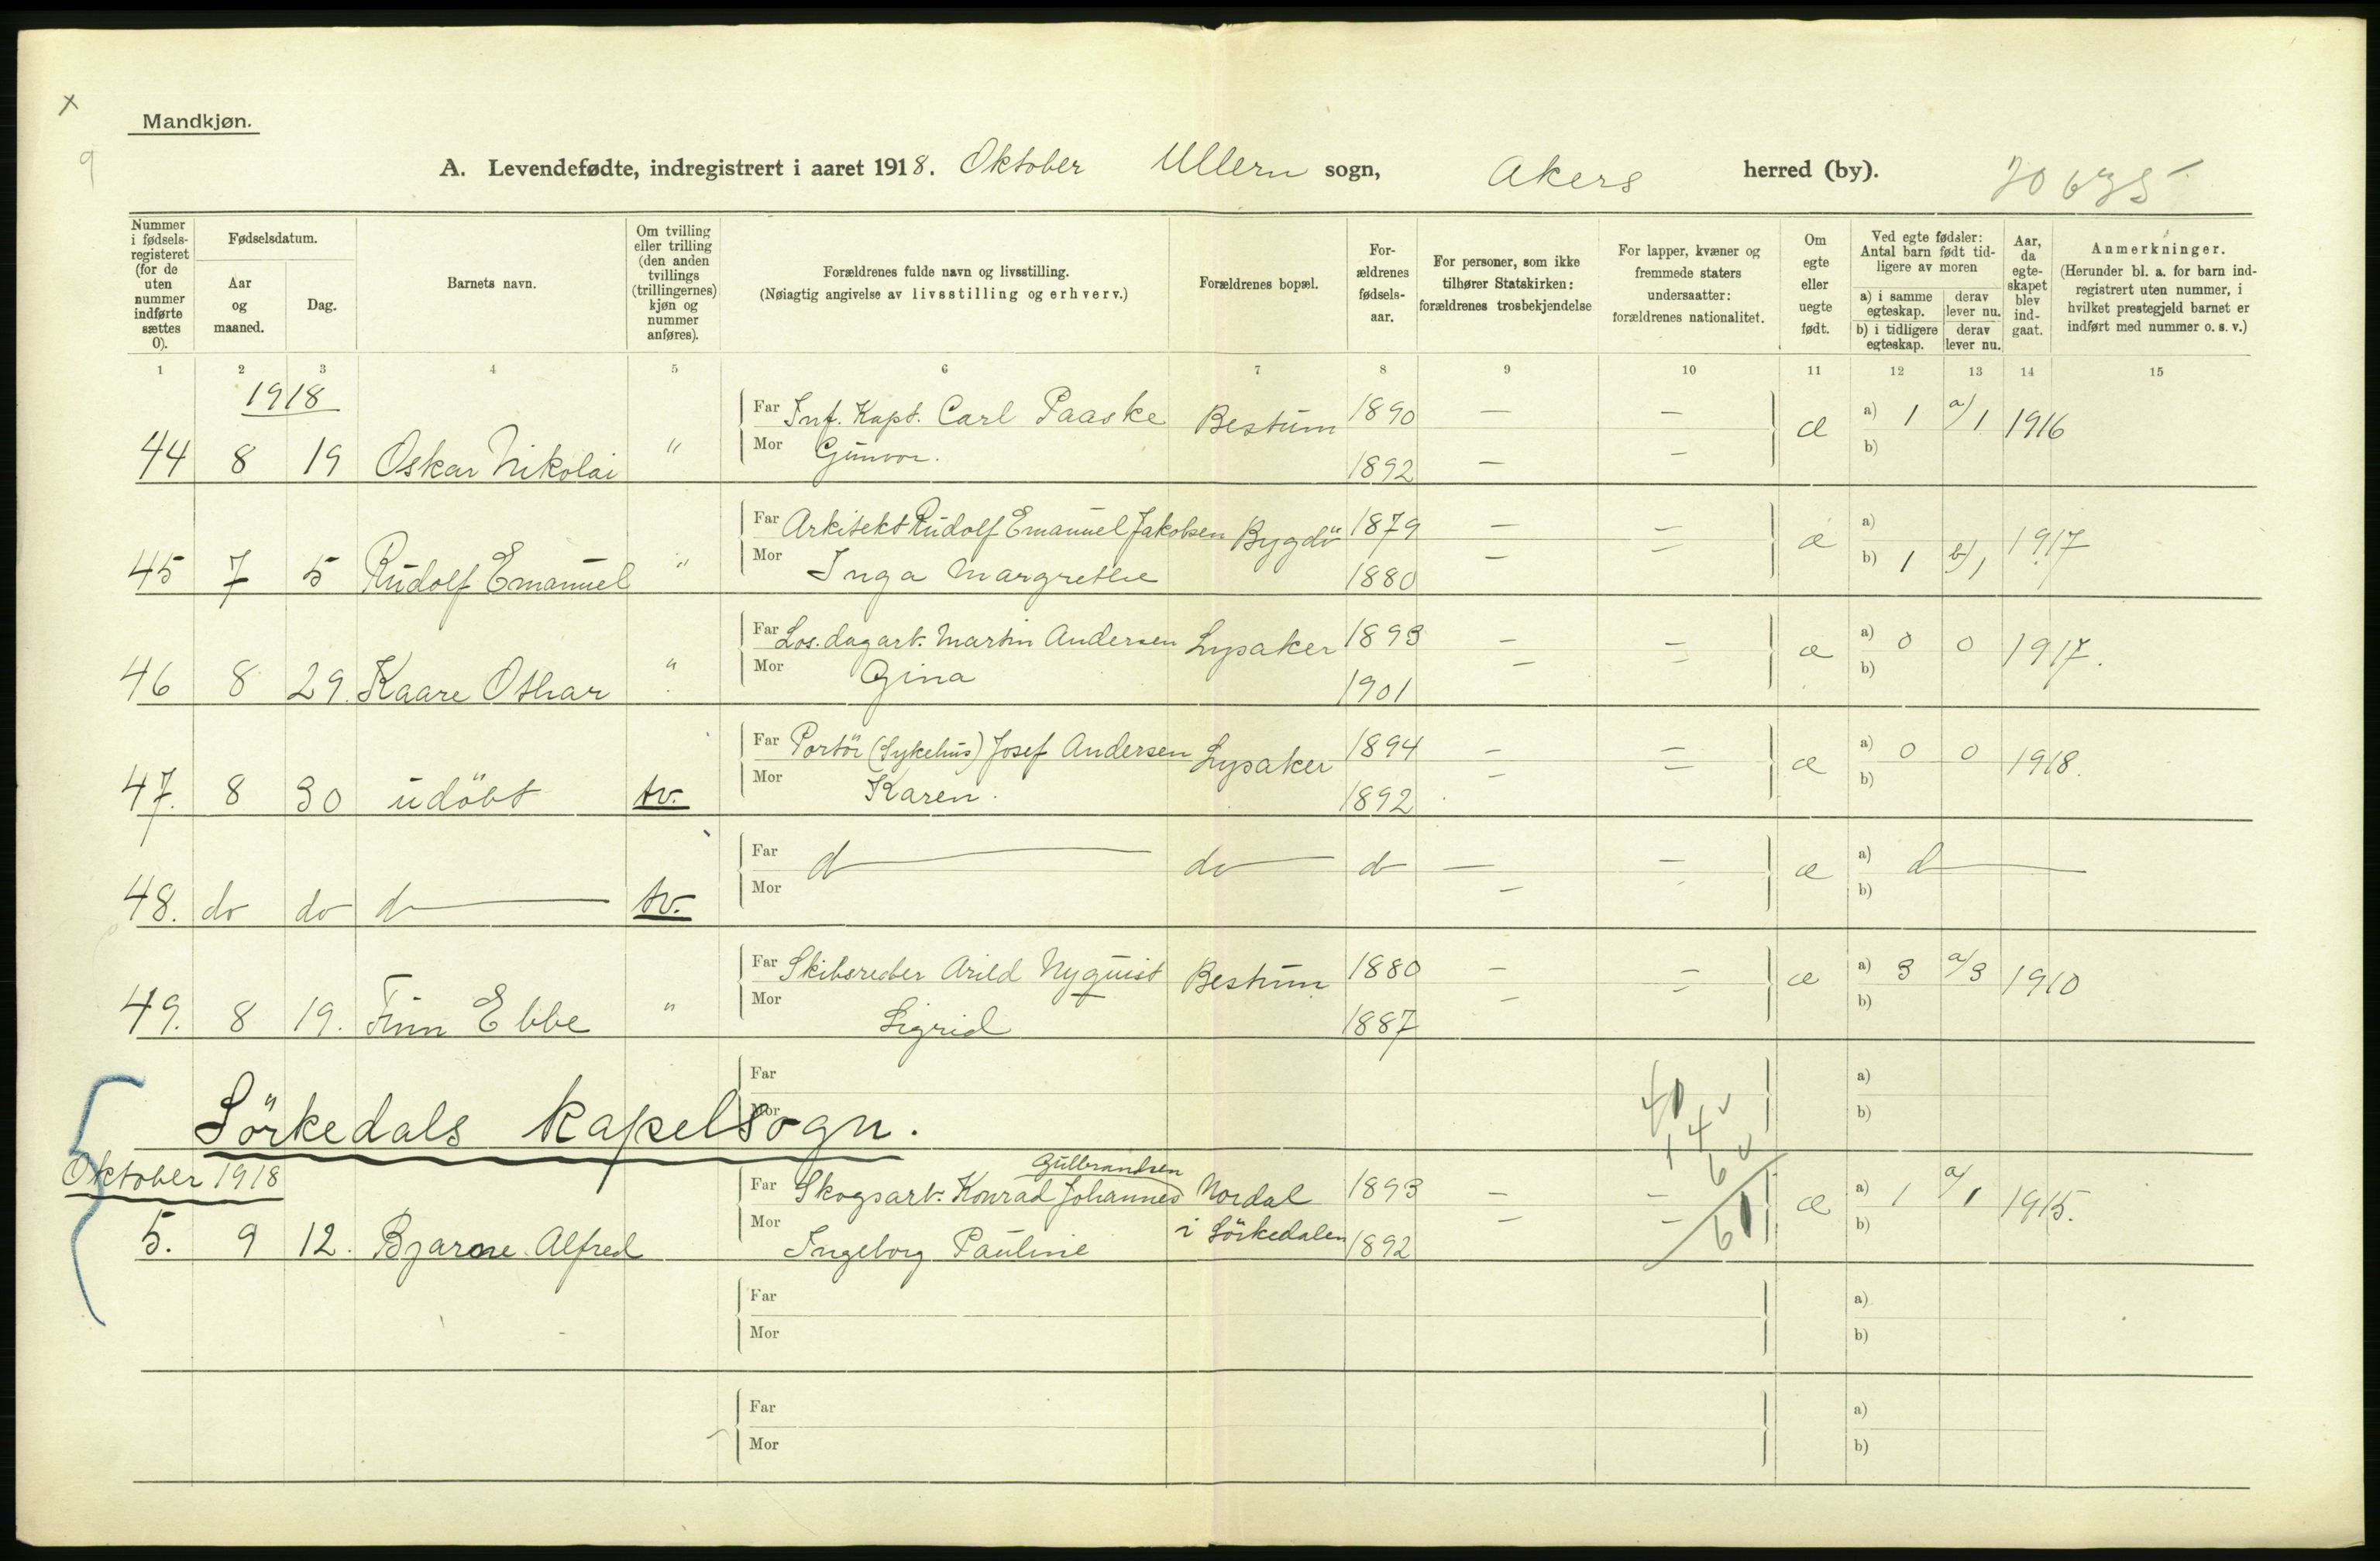 Mandkjøn.
A. Levendefødte, indregistrert i aaret 1918. Oktober Ullern sogn, Akers herred (by).
Nummer i fødsels-registeret (for de uten nummer indførte sættes 0).
Fødselsdatum.
Aar og maaned.
Dag.
Barnets navn.
Om tvilling eller trilling (den anden tvillings (trillingernes) kjøn og nummer anføres).
Forældrenes fulde navn og livsstilling.
(Nøiagtig angivelse av livsstilling og erhverv.)
Forældrenes bopæl.
For-ældrenes fødsels-aar.
For personer, som ikke tilhører Statskirken: forældrenes trosbekjendelse
For lapper, kvæner og fremmede staters undersaatter: forældrenes nationalitet.
Om egte eller uegte født.
Ved egte fødsler: Antal barn født tid-ligere av moren
a) i samme egteskap. derav lever nu.
b) i tidligere egteskap. derav lever nu.
Aar, da egte-skapet blev ind-gaat.
Anmerkninger.
(Herunder bl. a. for barn ind-registrert uten nummer, i hvilket prestegjeld barnet er indført med nummer o. s. v.)
1 2 3 4 5 6 7 8 9 10 11 12 13 14 15
1918
Far Inf. Kapt. Carl Paaske Bestum 1890 — — æ a) 1 a/1 1916
44 8 19 Oskar Nikolai " Mor Gunvor. 1892 — — b)
Far Arkitekt Rudolf Emanuel Jakobsen Bygdö 1879 — — æ a) 1917
45 7 5 Rudolf Emanuel " Mor Inga Margrethe 1880 — — b) 1 b/1
Far Los. dagarb. Martin Andersen Lysaker 1893 — — æ a) 0 0 1917.
46 8 29. Kaare Othar " Mor Gina 1901 — — b)
Far Portör (Sykehus) Josef Andersen Lysaker 1894 — — æ a) 0 0 1918.
47. 8 30 udöbt tv. Mor Karen. 1892 — — b)
Far d— do— d — — æ a) d—
48. do do d— tv. Mor — b)
Far Skibsreder Arild Nyquist Bestum 1880 — — æ a) 3 a/3 1910
49. 8 19. Finn Ebbe " Mor Sigrid 1887 — — b)
Far a)
Mor b)
Sörkedals kapelsogn.
41
14
6
61
Oktober 1918
Gulbrandsen
Far Skogsarb. Konrad Johannes Nordal 1893 — — æ a) 1 a/1 1915.
5. 9 12. Bjarne Alfred Mor Ingeborg Pauline i Sörkedalen 1892 — — b)
Far a)
Mor b)
Far a)
Mor b)